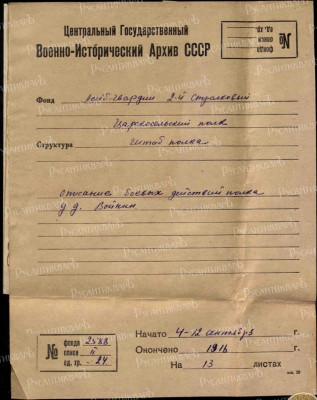 Центральный Государственный
Военно-Исторический Архив СССР
№
фонда
описи
ед. хр.
Фонд Лейб-гвардии 2-й Стрелковый
Царскосельский полк
Структура Штаб полка
Описание боевых действий полка
у д. Войнин
Начато 4-12 сентября г.
Окончено 1916 г.
На 13 листах
№
фонда
описи II
ед. хр. 24